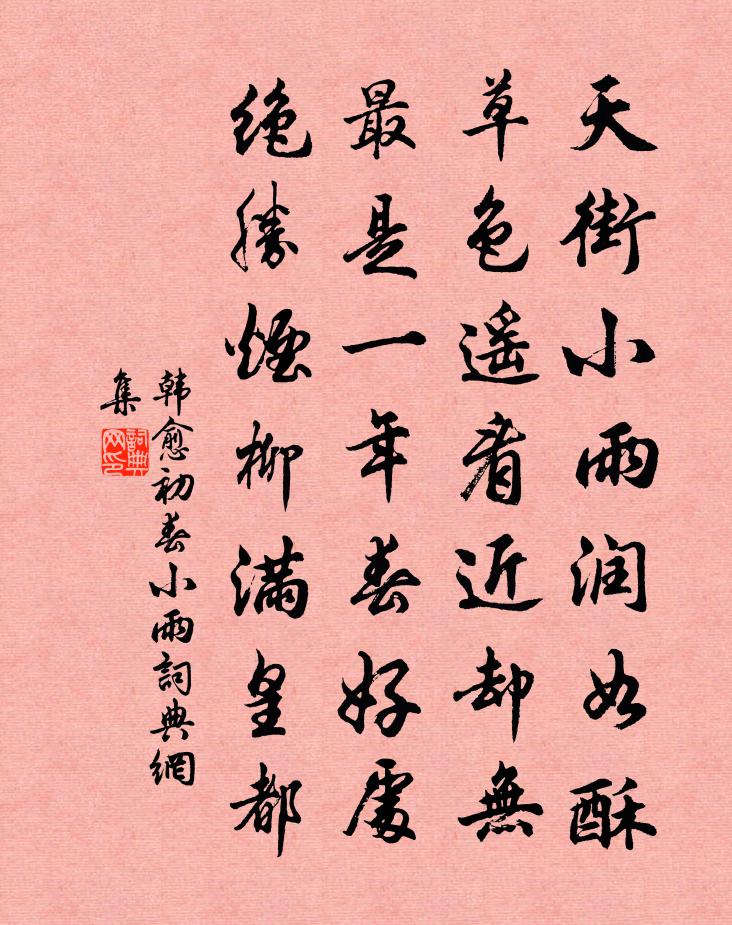 天街小雨润如酥
草色遥看近却無
最是一年春好處
绝勝煙柳满皇都
韩愈初春小雨詞典網
集
詞典
网印